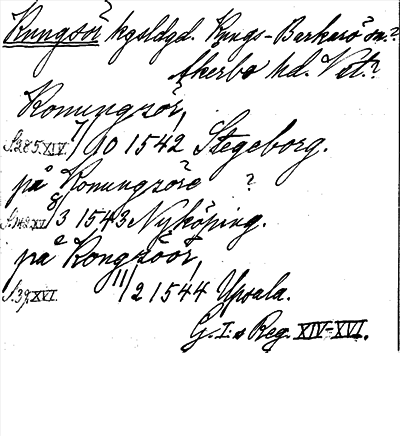 Kungsör kgsldgd. Kungs-Barkarö sn.?
Åkerbo hd. Vst.?
Konungzör,
S.285.XIV. 7/10 1542 Stegeborg.
på Konungzöre ?
S.142.XV. 8/3 1543 Nyköping.
på Kongzöör,
S.39.XVI. 11/2 1544 Upsala.
G. I:s Reg. XIV-XVI.